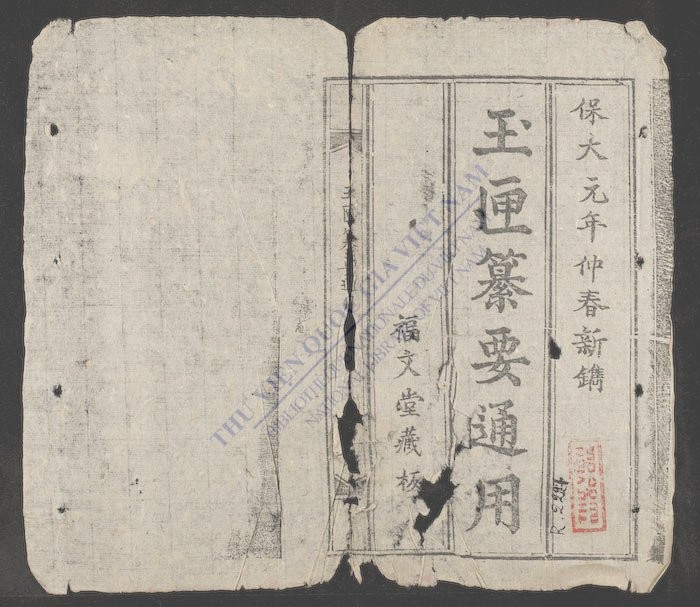 保大元年仲春新鐫
玉匣纂要通用
福文堂藏板
THƯ VIỆN QUỐC GIA VIỆT NAM
BIBLIOTHÈQUE NATIONALE DU VIETNAM
NATIONAL LIBRARY OF VIETNAM